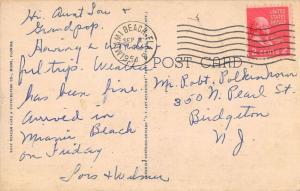 Hi, Aunt Lou &
Grandpop.
Having a wonder-
ful trip. Weather
has been fine.
arrived in
Miami Beach
on Friday
Lois & Wilmer
MIAMI BEACH, FLA.
SEP
1954
POST CARD
Mr. Robt. Polkinhorn
350 N. Pearl St.
Bridgeton
N.J.